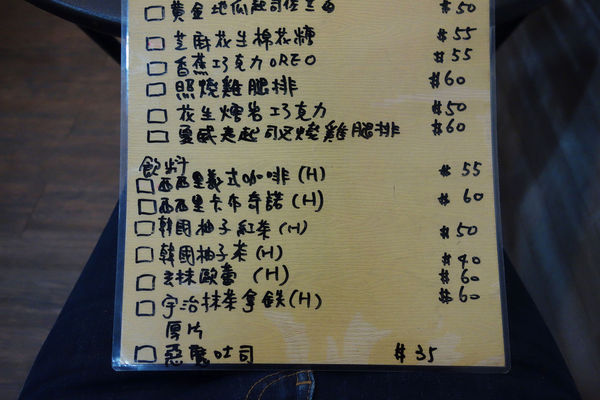 黃金地瓜起司 $50
芝麻花生棉花糖 $55
香蕉巧克力OREO $55
照燒雞腿排 $60
花生熔岩巧克力 $50
夏威夷起司燒雞腿排 $60
飲料
西西里義式咖啡(H) $55
西西里卡布奇諾(H) $60
韓國柚子紅茶(H) $50
韓國柚子茶(H) $40
抹歐蕾(H) $60
宇治抹茶拿鐵(H) $60
厚片
惡魔吐司 $35